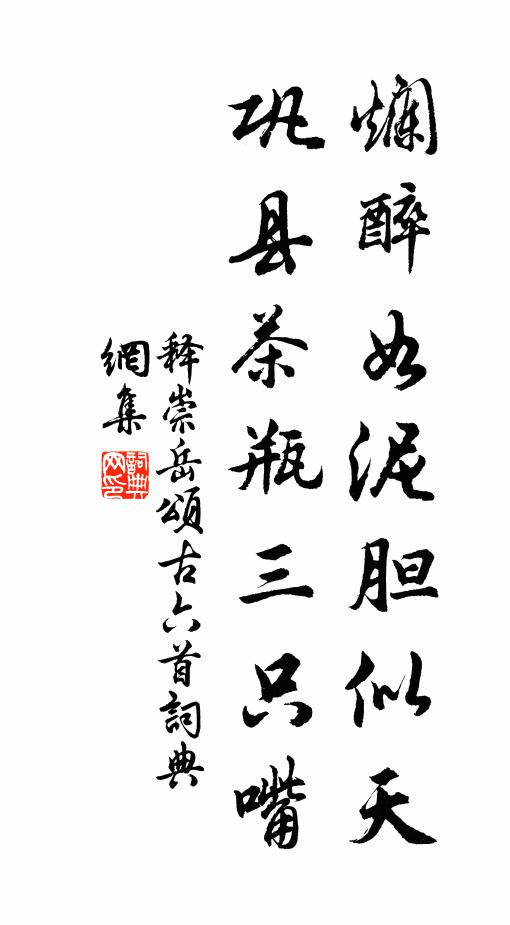 爛醉如泥胆似天
巩县茶瓶三只嘴
释崇岳頌古六首詞典
網集
詞典
网印